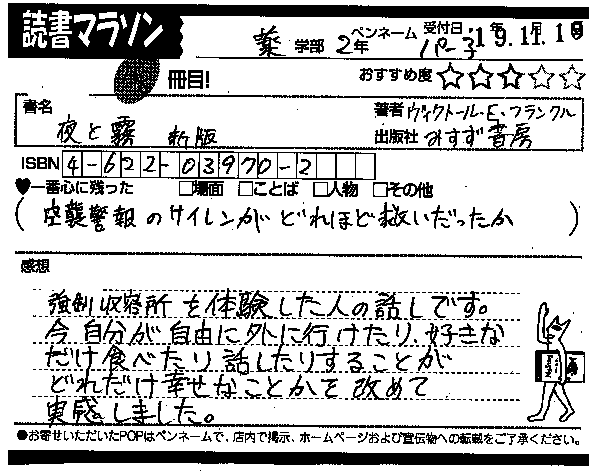 読書マラソン
薬 学部 2年 ペンネーム パー子 受付日 '19.11.1
冊目!
おすすめ度 ☆☆☆☆☆
書名 夜と霧 新版
著者 ヴィクトール・E・フランクル
出版社 みすず書房
ISBN 4-622-03970-2
♥一番心に残った □場面 □ことば □人物 □その他
(空襲警報のサイレンがどれほど救いだったか)
感想
強制収容所を体験した人の話しです。
今自分が自由に外に行けたり、好きな
だけ食べたり話したりすることが
どれだけ幸せなことかを改めて
実感しました。
●お寄せいただいたPOPはペンネームで、店内で掲示、ホームページおよび宣伝物への転載をご了承ください。